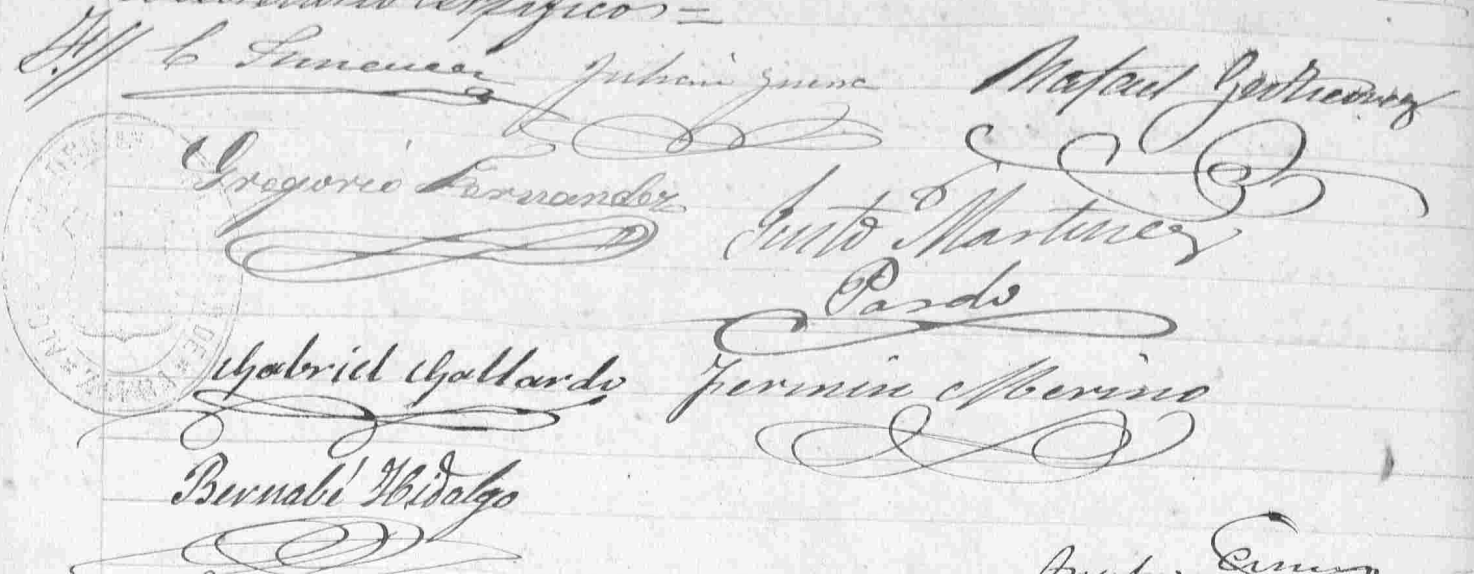 certifico =
Julian
Rafael Gutierrez
Gregorio Fernandez
Justo Martinez
Pardo
Gabriel Gallardo
Fermin Merino
Bernabé Hidalgo